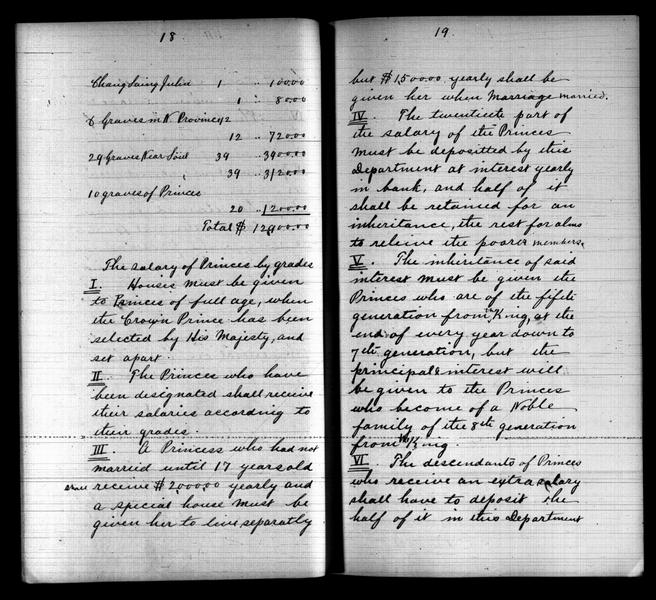 18
Chaig Saing Julin 1 .. 100.00
1 .. 80.00
6 Graves in N. Province 12
12 .. 720.00
29 Graves Near Soul 39 .. 3900.00
39 .. 3120.00
10 graves of Princes
20 .. 1200.00
Total $ 12900.00
The salary of Princes by grades
I. Houses must be given
to Princes of full age, when
the Crown Prince has been
selected by His Majesty, and
set apart.
II. The Princes who have
been designated shall receive
their salaries according to
their grades.
III. A Princess who had not
married until 17 years old
receive $ 2,000.00 yearly and
a special house must be
given her to live separatly
19
but $1,500.00 yearly shall be
given her when Marriage married.
IV. The twentieth part of
the salary of the Princes
must be depositted by this
Department at interest yearly
in bank, and half of it
shall be retained for an
inheritance, the rest for alms
to releive the poorer members.
V. The inheritance of said
interest must be given the
Princes who are of the fifth
generation from King, at the
end of every year down to
7th generation, but the
principal & interest will
be given to the Princes
who become of a Noble
family of the 8th generation
from King.
VI. The descendants of Princes
who receive an extra salary
shall have to deposit the
half of it in this Department